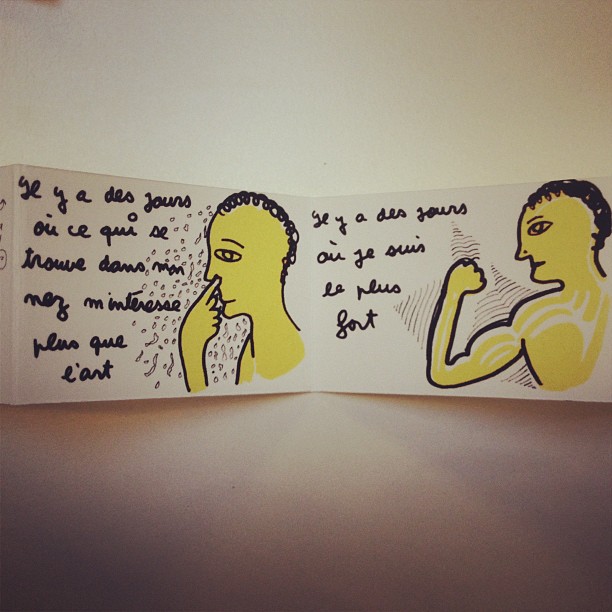 il y a des jours
où ce qui se
trouve dans mon
nez m'intéresse
plus que
l'art
il y a des jours
où je suis
le plus
fort